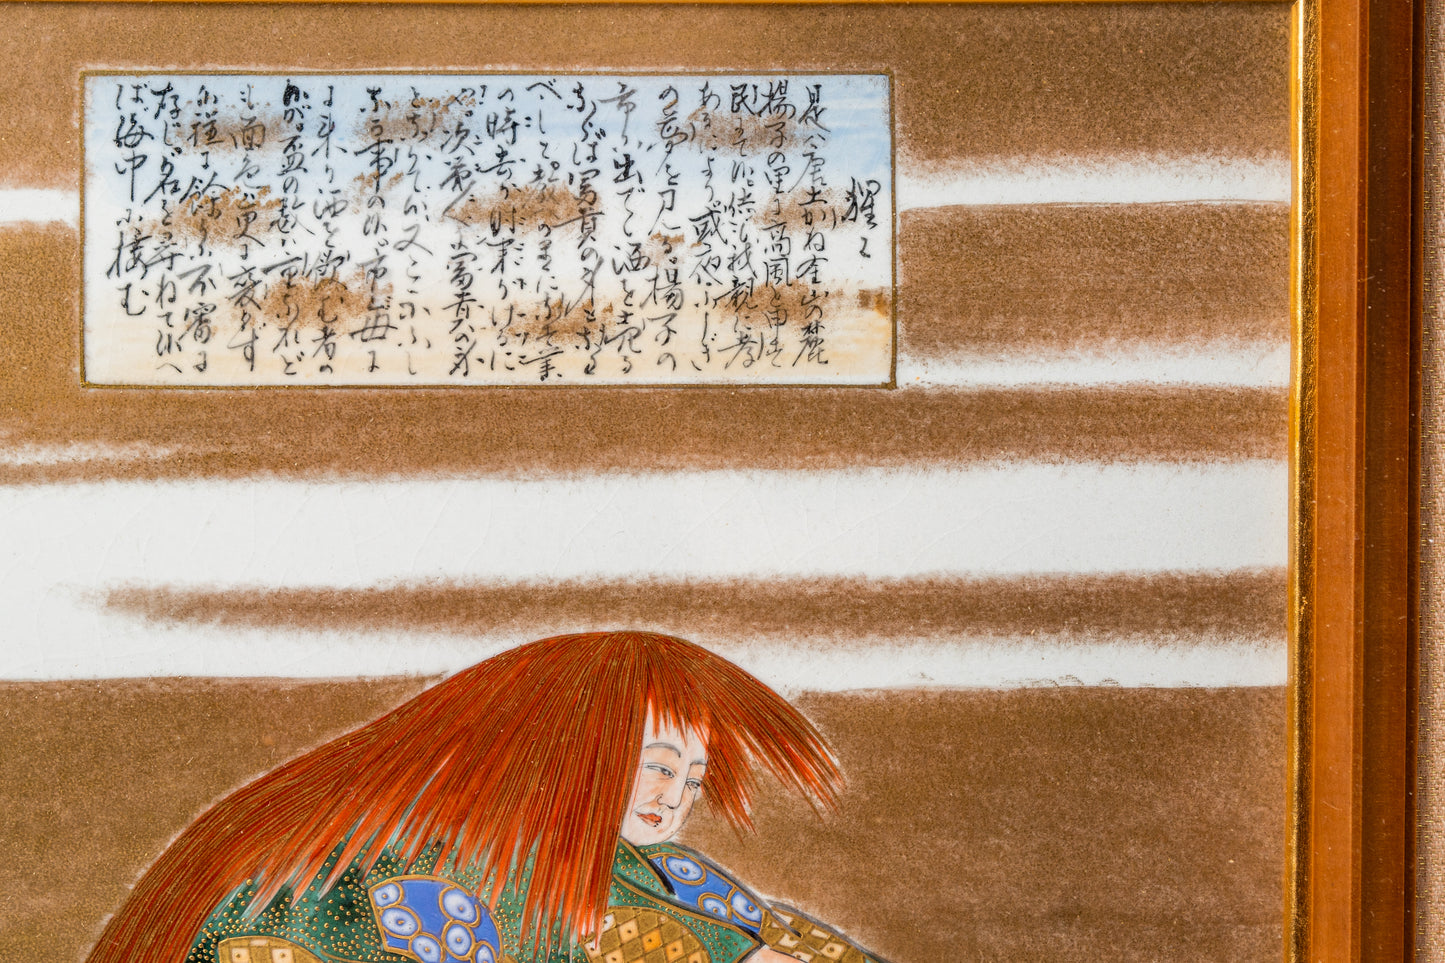 猩々
是ハ唐土かね金山の麓
揚子の里に高風と申す
民にて候扨も我親に孝
あるにより或夜ふしぎ
の夢を見る揚子の
市に出でて酒を売る
ならば富貴の身となる
べしと教の儘になす業
の時去り時来りけるに
や次第〻に富貴の身
となりて候又ここにふし
なる事の候市毎に
に来り酒を飲む者の
候が盃の数は重なれど
も面色は更に変らず
候程に余りに不審に
存じ名を尋ねて候へ
ば海中に棲む